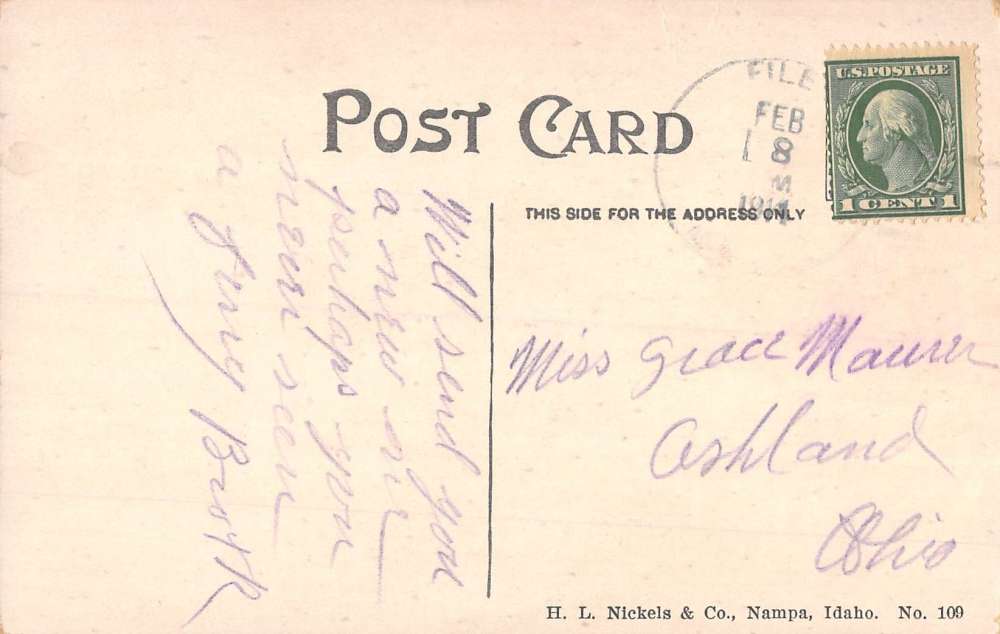 POST CARD
THIS SIDE FOR THE ADDRESS ONLY
FILE
FEB
8
M
U.S. POSTAGE
1 CENT 1
Will send you
a new one
perhaps you
never seen
a
Miss Grace Maurer
Ashland
Ohio
H. L. Nickels & Co., Nampa, Idaho. No. 109